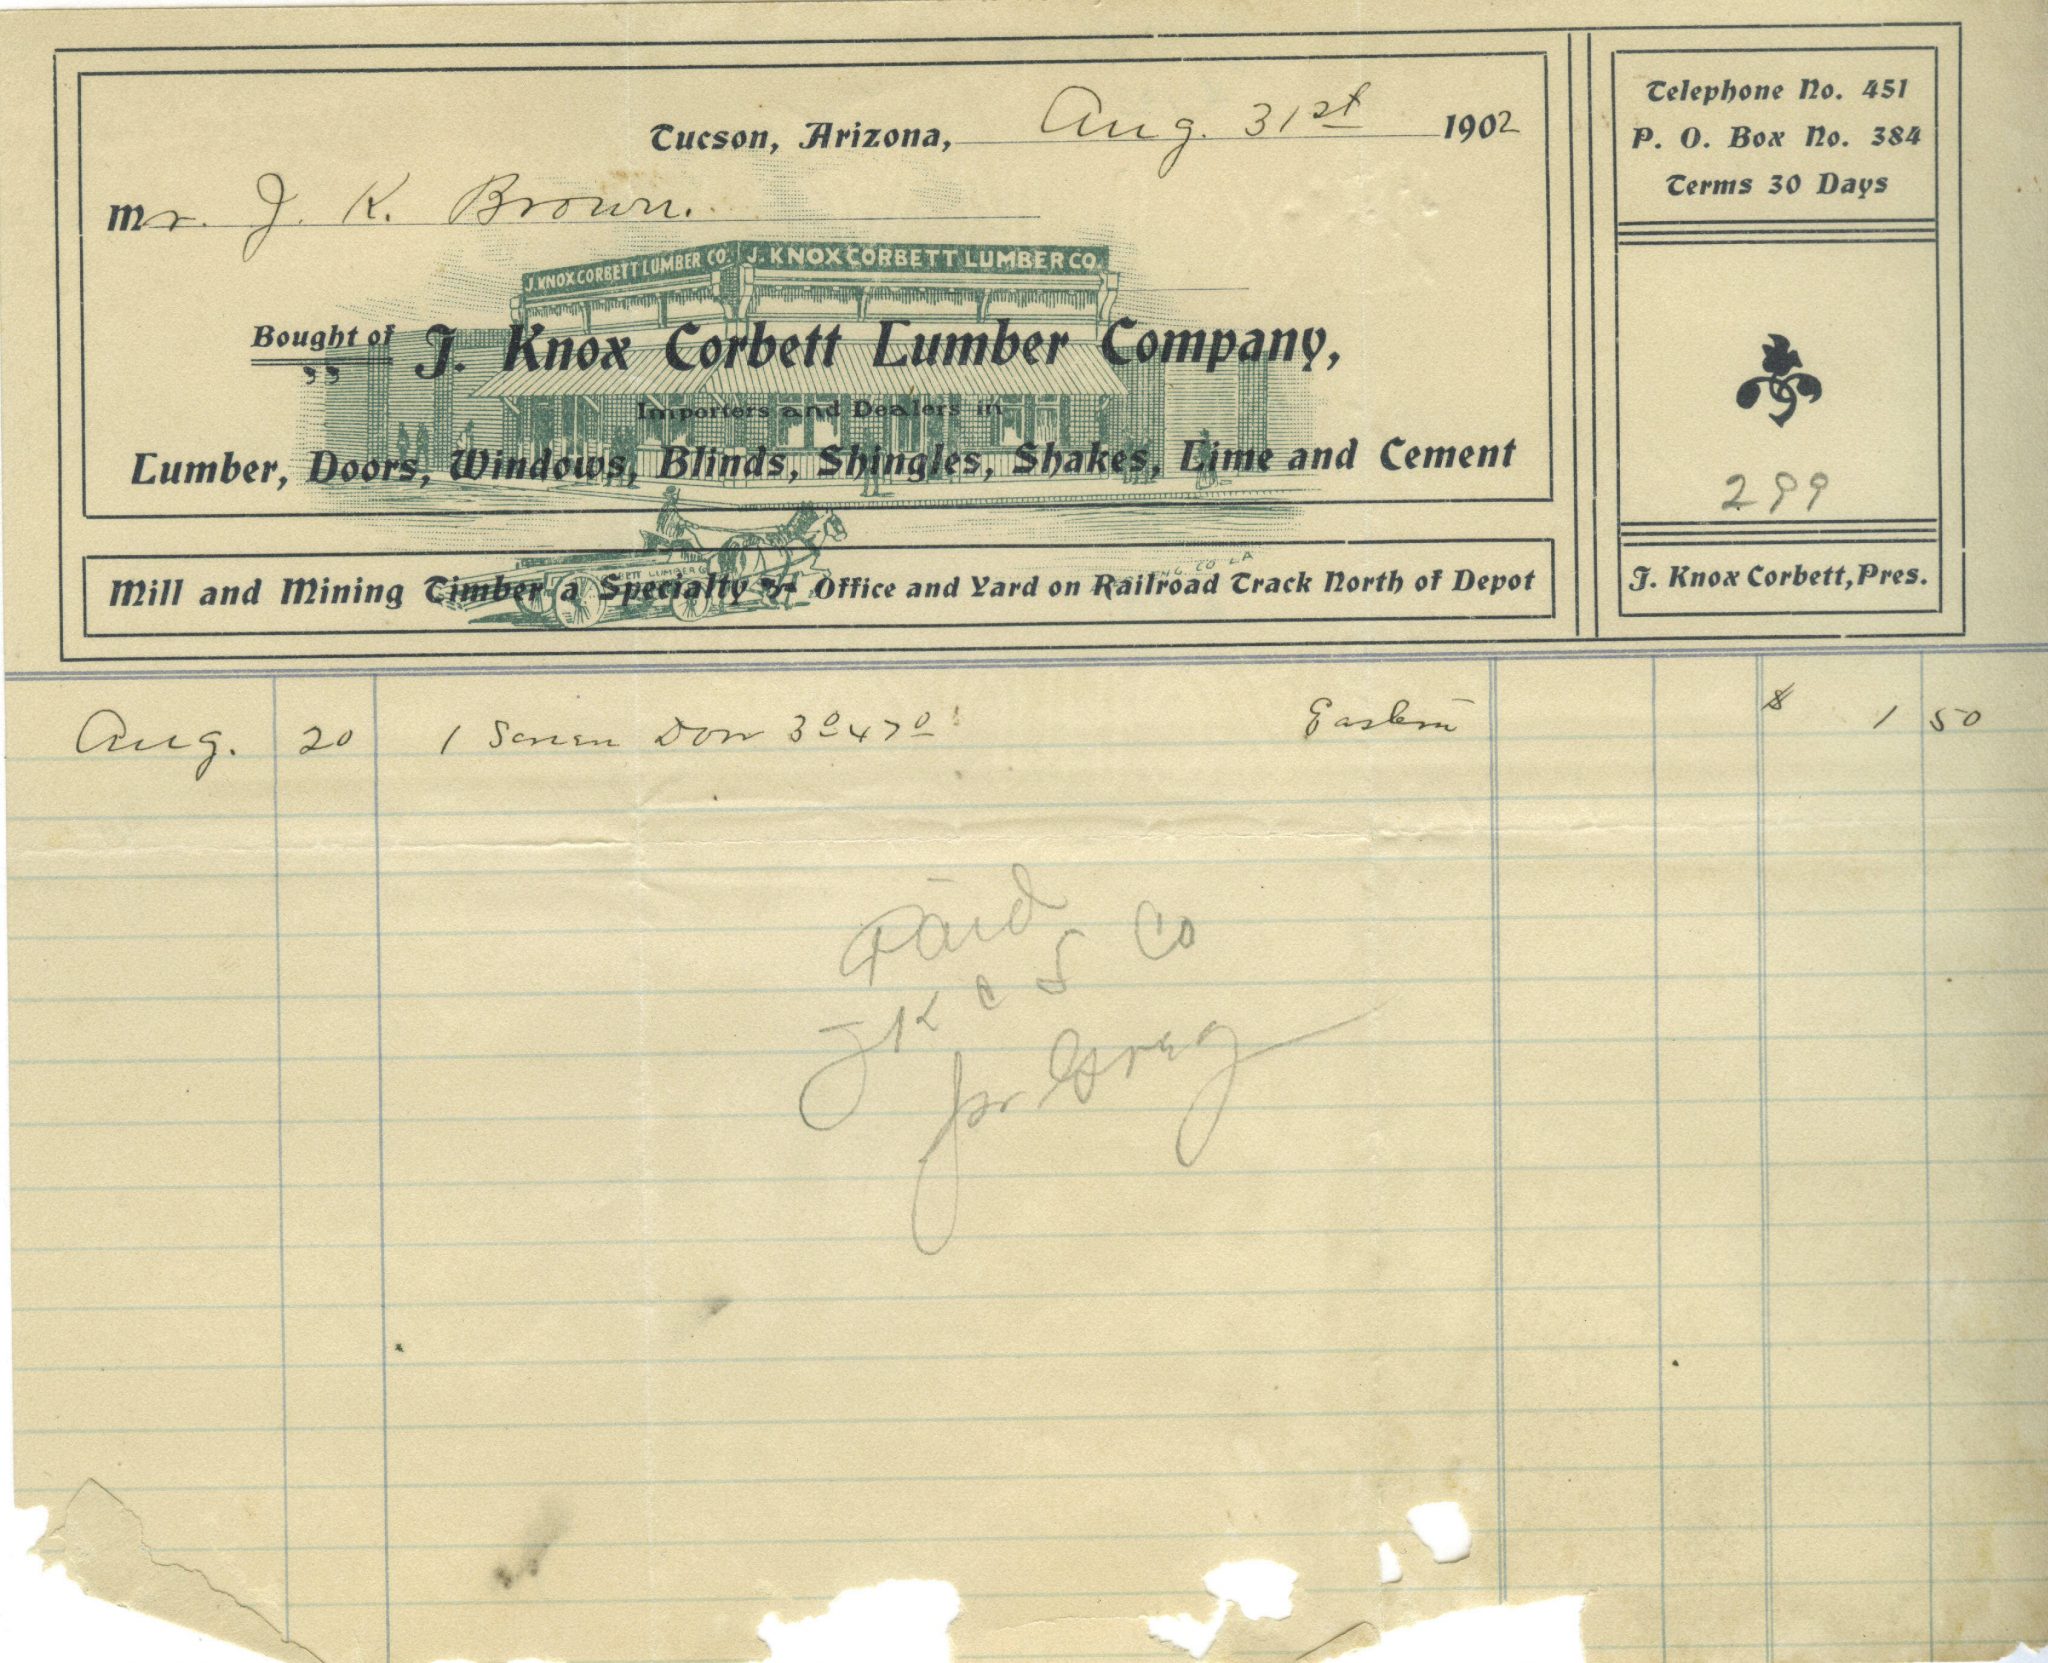 Tucson, Arizona, Aug. 31st 1902
Mr. J. K. Brown.
J. KNOX CORBETT LUMBER CO. J. KNOX CORBETT LUMBER CO.
Bought of J. Knox Corbett Lumber Company,
Importers and Dealers in
Lumber, Doors, Windows, Blinds, Shingles, Shakes, Lime and Cement
LUMBER
Mill and Mining Timber a Specialty Office and Yard on Railroad Track North of Depot
Telephone No. 451
P. O. Box No. 384
Terms 30 Days
299
J. Knox Corbett, Pres.
Aug. 20 1 Screen Door Eastern $ 1 50
Paid
J K C Co
Greg